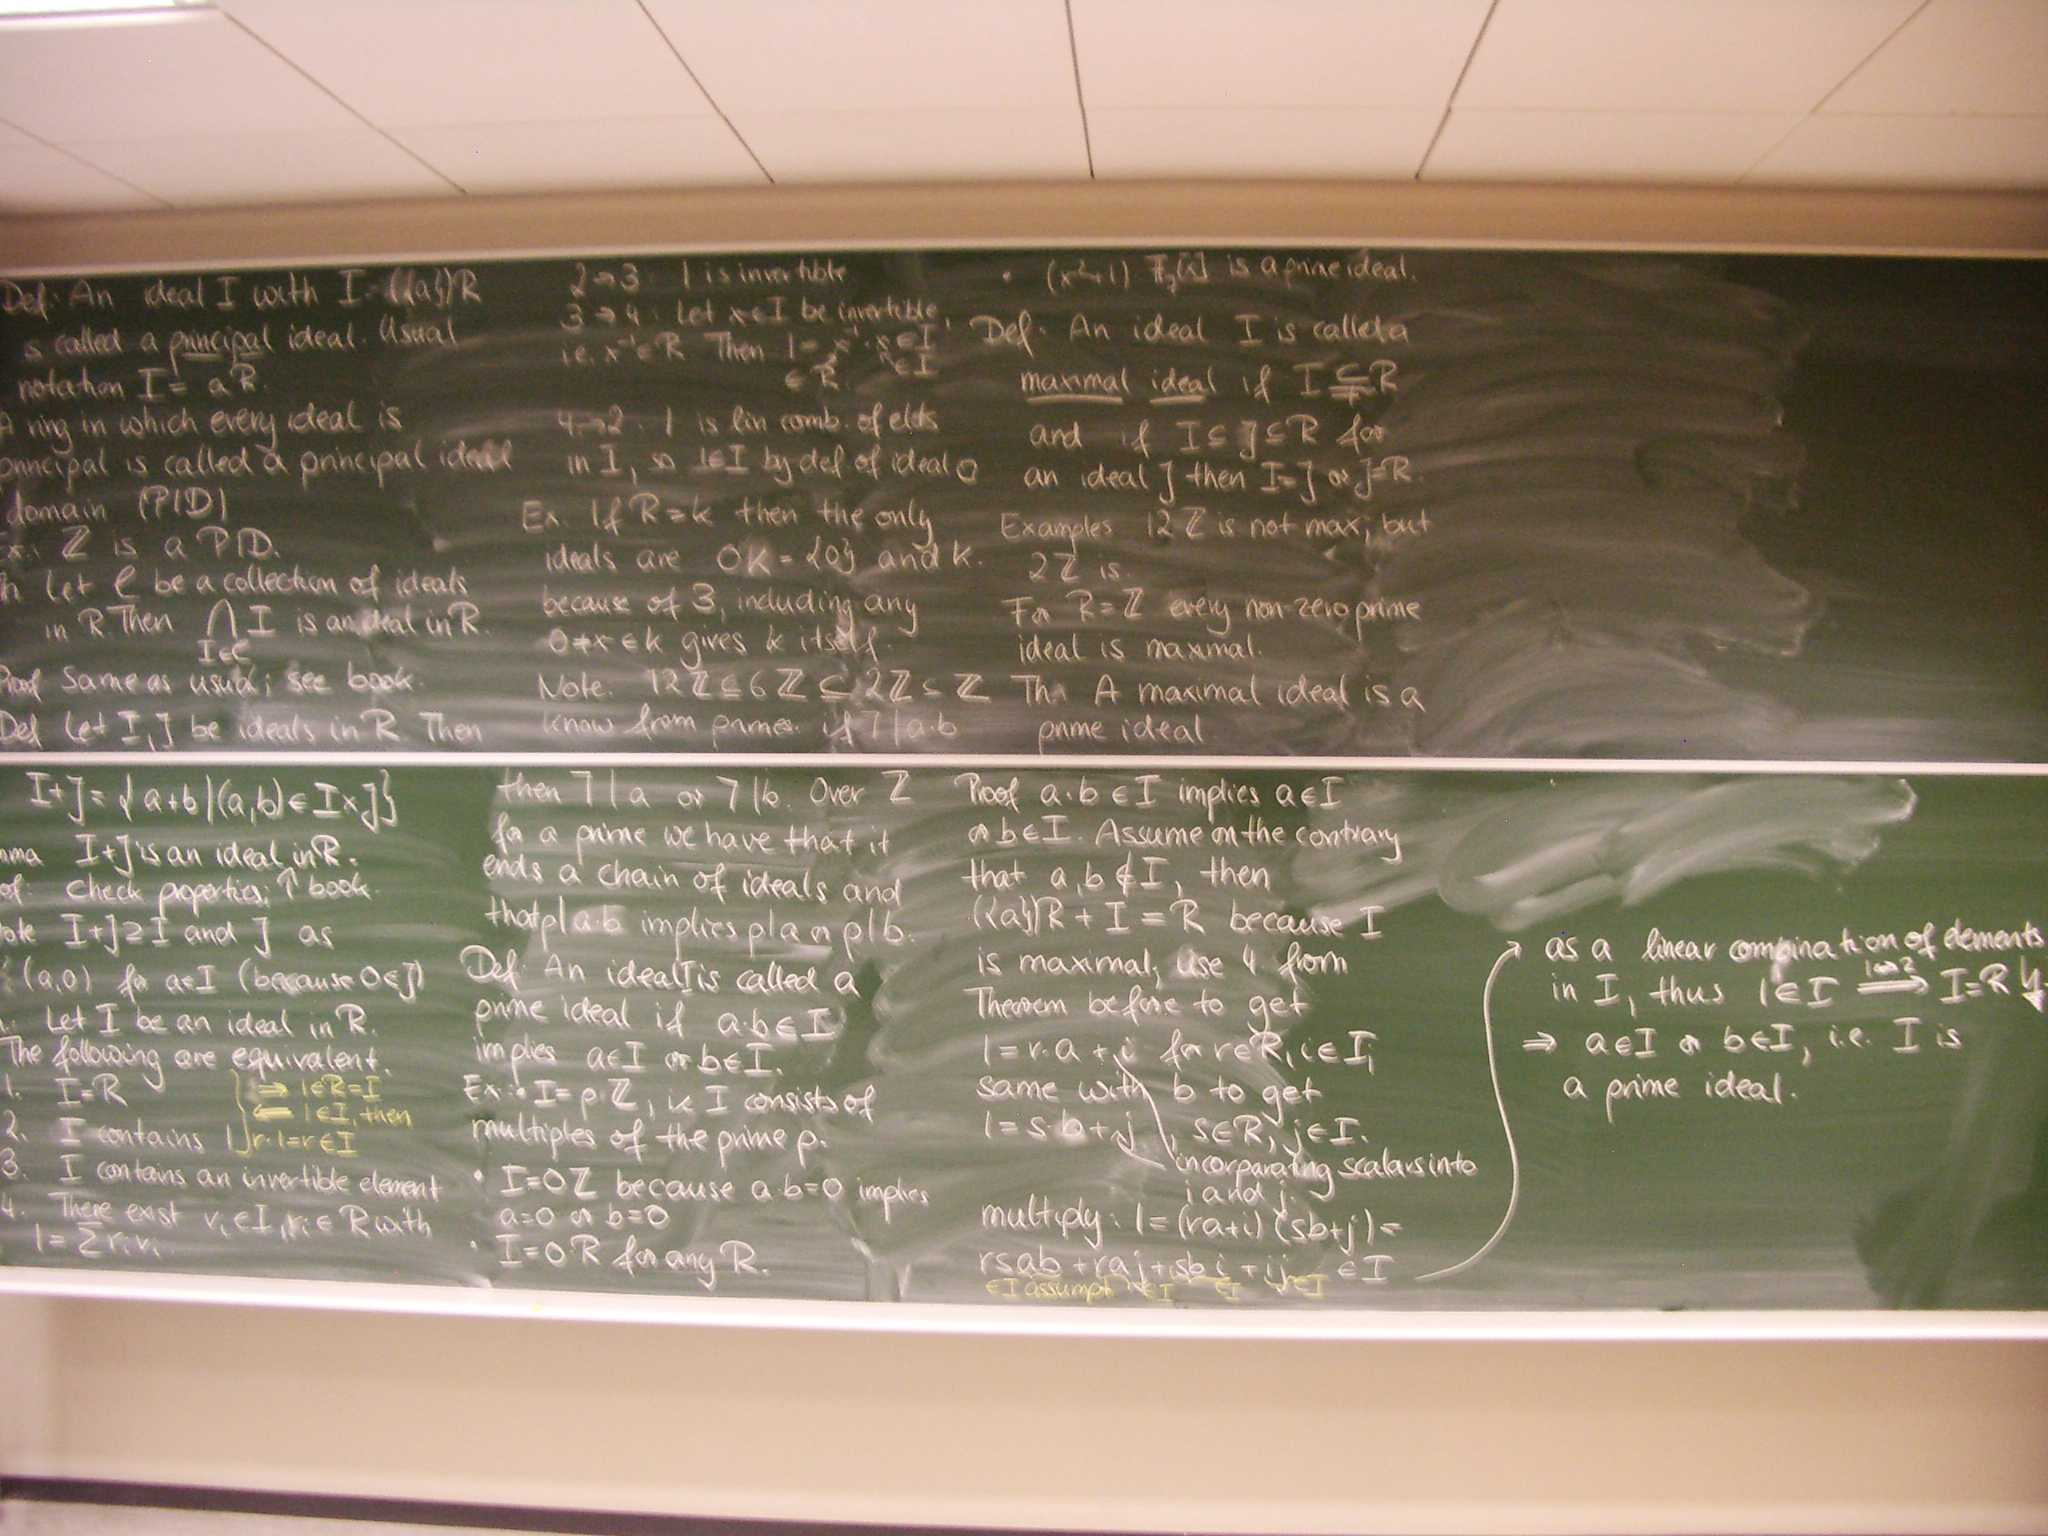 Def: An ideal I with I=({a})R
is called a principal ideal. Usual
notation I = aR.
A ring in which every ideal is
principal is called a principal ideal
domain (PID)
Ex: ℤ is a PID.
Let C be a collection of ideals
in R. Then ⋂ I is an ideal in R.
I∈C
Proof Same as usual; see book.
Def Let I, J be ideals in R. Then
I+J = {a+b | (a,b) ∈ I×J}
mma I+J is an ideal in R.
of: Check properties; ↑ book.
ote I+J ⊇ I and J as
(a,0) for a∈I (because 0∈J)
Let I be an ideal in R.
The following are equivalent.
1. I=R
2. I contains 1
} ⇒ 1∈R=I
⇐ 1∈I, then
r·1=r∈I
3. I contains an invertible element
4. There exist vᵢ∈I, rᵢ∈R with
1=∑rᵢvᵢ
2→3: 1 is invertible
3→4: Let x∈I be invertible,
i.e. x⁻¹∈R Then 1 = x⁻¹·x ∈ I
∈R ∈I
4→2: 1 is lin comb. of elts
in I, so 1∈I by def of ideal □
Ex. If R=k then the only
ideals are 0k={0} and k.
because of 3, including any
0≠x∈k gives k itself.
Note: 12ℤ⊆6ℤ⊆2ℤ⊆ℤ
know from primes: if 7|a·b
then 7|a or 7|b. Over ℤ
for a prime we have that it
ends a chain of ideals and
that p|a·b implies p|a or p|b.
Def: An ideal I is called a
prime ideal if a·b∈I
implies a∈I or b∈I.
Ex: • I=p·ℤ, ie I consists of
multiples of the prime p.
• I=0ℤ because a·b=0 implies
a=0 or b=0
• I=0·R for any R.
• (x²+1) 𝔽₂[x] is a prime ideal.
Def: An ideal I is called a
maximal ideal if I⊊R
and if I⊆J⊆R for
an ideal J then I=J or J=R.
Examples 12ℤ is not max, but
2ℤ is.
For R=ℤ every non-zero prime
ideal is maximal.
Th: A maximal ideal is a
prime ideal
Proof a·b∈I implies a∈I
or b∈I. Assume on the contrary
that a,b∉I, then
({a})R + I = R because I
is maximal, use 4 from
Theorem before to get
1=r·a+i for r∈R, i∈I,
same with b to get
1=s·b+j, s∈R, j∈I.
incorparating scalars into
i and j.
multiply: 1=(ra+i)(sb+j)=
rsab+raj+sbi+ij ∈I
∈I assumpt ∈I ∈I ∈I
as a linear combination of elements
in I, thus 1∈I ⟹ I=R ↯
1⇔2
⇒ a∈I or b∈I, i.e. I is
a prime ideal.